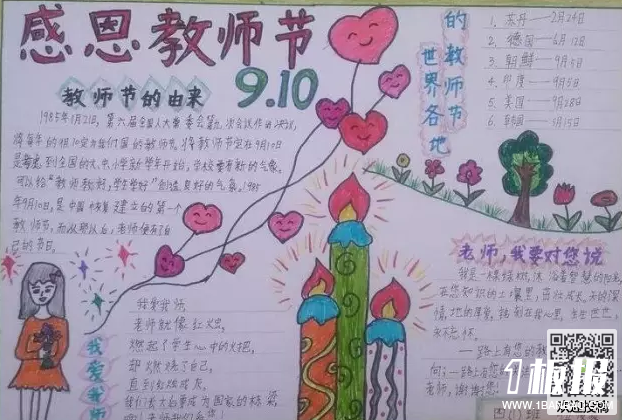 感恩教师节
9.10
教师节的由来
1985年1月21日，第六届全国人大常委会第九次会议作出决议，
将每年的9月10定为我们国的教师节。将教师节定在9月10日
是考虑到全国的大、中、小学新学年开始，学校要有新的气象。
可以给"教师教好，学生学好"创造良好的气氛。1985
年9月10日，是中国恢复建立的第一个
教师节，而从那以后，老师便有了自
己的节日。
世界各地
的教师节
1、苏丹——2月24日
2、德国——6月12日
3、朝鲜——9月5日
4、印度——9月5日
5、美国——9月28日
6、韩国——5月15日
我爱我师
我爱我师，
老师就像红烛，
燃起了学生心中的火把，
却燃烧了自己，
直到
我们长大后要成为国家的栋梁，
老师，我要对您说
我是一棵绿树，沐浴着智慧的阳光，
在您知识的土壤里，茁壮成长，天的深
情，地的厚爱，铭刻在我心里，生生世世，
永不忘怀。
——路上有您的教
老师，谢谢您！
1板报